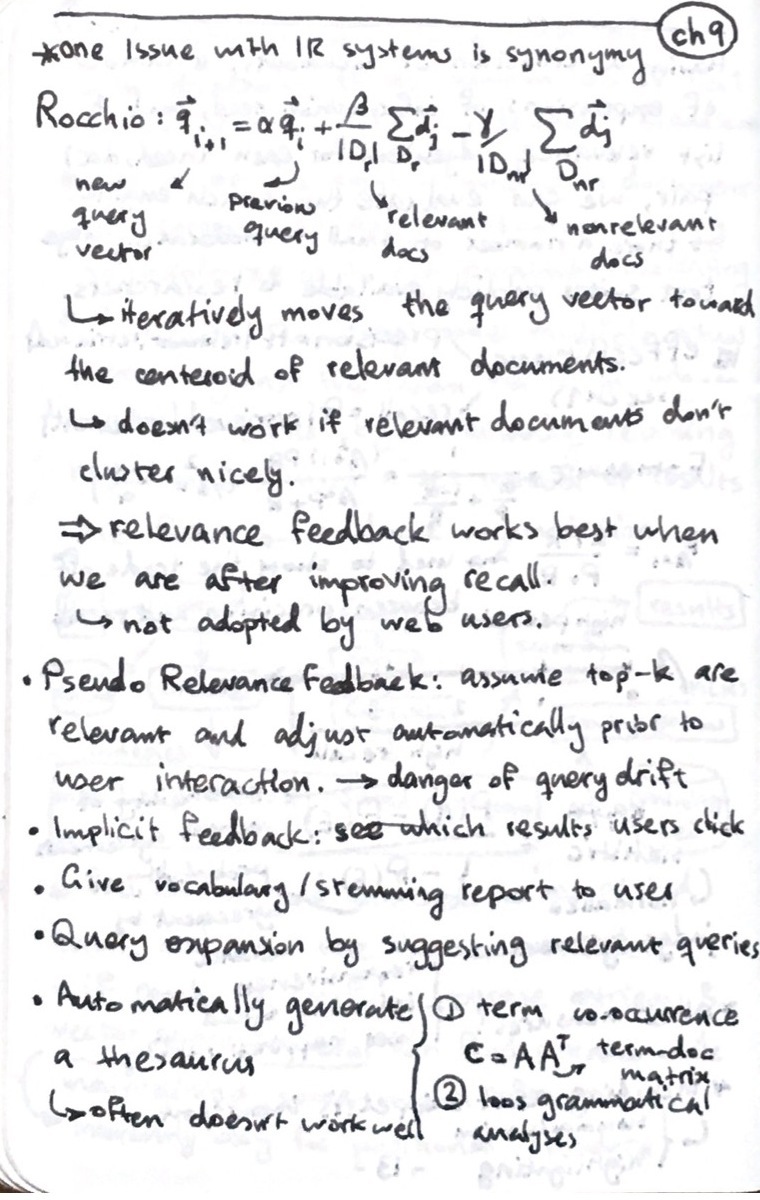 ch9
*one issue with IR systems is synonymy
Rocchio: q⃗ᵢ₊₁ = α q⃗ᵢ + β/|Dᵣ| Σ_Dᵣ d⃗ⱼ - γ/|Dₙᵣ| Σ_Dₙᵣ d⃗ⱼ
new query vector
previous query
relevant docs
nonrelevant docs
↳ iteratively moves the query vector toward
the centeroid of relevant documents.
↳ doesn't work if relevant documents don't
cluster nicely.
⇒ relevance feedback works best when
we are after improving recall.
↳ not adopted by web users.
• Pseudo Relevance Feedback: assume top-k are
relevant and adjust automatically prior to
user interaction. → danger of query drift
• Implicit feedback: see which results users click
• Give vocabulary/stemming report to user
• Query expansion by suggesting relevant queries
• Automatically generate
a thesaurus
↳ often doesn't work well
① term co-occurrence
C = AAᵀ term-doc
matrix
② loos grammatical
analyses
- 13 -